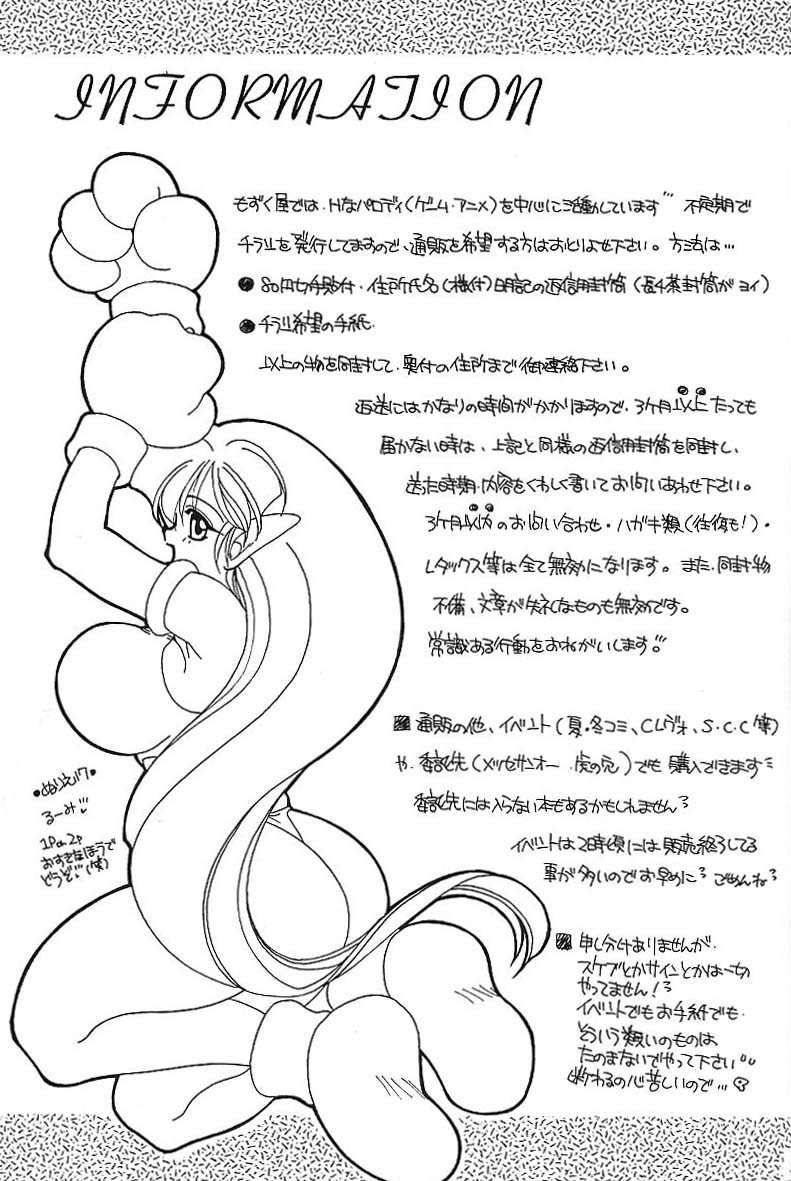 INFORMATION
もずく屋では、Hなパロディ(ゲーム・アニメ)を中心に活動しています 不定期で
チラシを発行してますので、通販を希望する方はおとりよせ下さい。方法は…
● 80円切手貼付・住所氏名(様付)明記の返信用封筒(長4茶封筒がヨイ)
● チラシ希望の手紙.
以上の物を同封して、奥付の住所まで御連絡下さい。
返送にはかなりの時間がかかりますので、3ケ月以上たっても
届かない時は、上記と同様の返信用封筒を同封し、
送った時期・内容をくわしく書いてお問いあわせ下さい。
3ケ月以内のお問い合わせ・ハガキ類(往復も!)・
Lタックス等は全て無効になります。また、同封物
不備、文章が失礼なものも無効です。
常識ある行動をおねがいします!!
通販の他、イベント(夏・冬コミ、Cレヴォ、S.C.C等)
や、委託先(メッセサンオー 虎の穴)でも購入できます
委託先には入らない本もあるかもしれません?
イベントは2時頃には販売終了してる
事が多いのでお早めに? ごめんね?
申し分けありませんが、
スケブとかサインとかは一切
やってません!
イベントでもお手紙でも、
どういう類いのものは
たのまないでやって下さい
断わるの心苦しいので…
•ぬりえ
るーみ
1Por2P
おすきなほうで
どうぞ(笑)